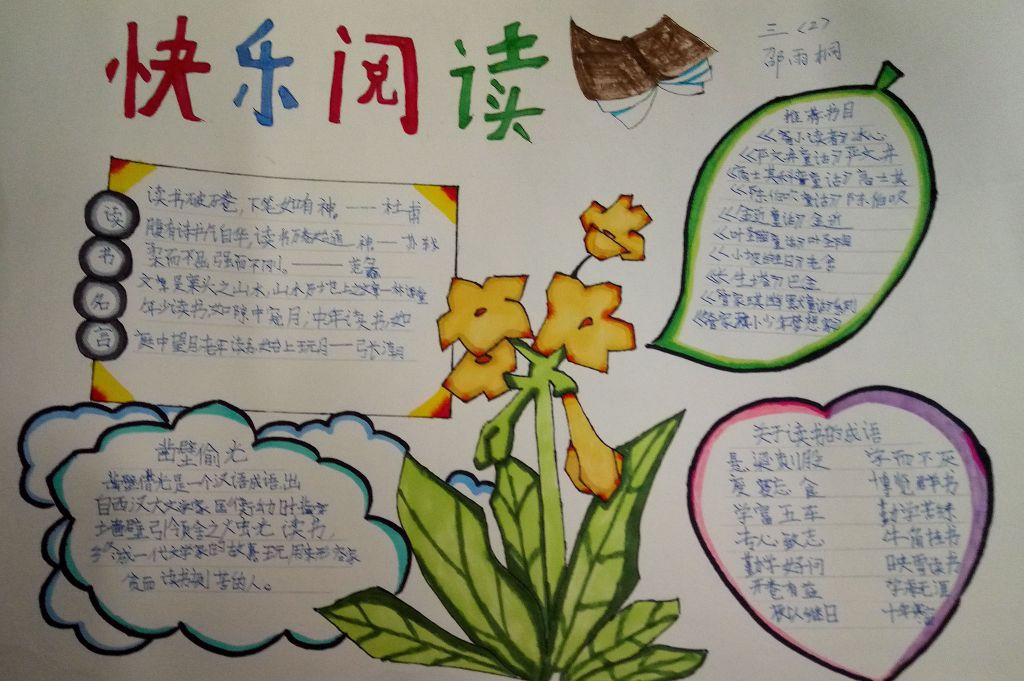 快乐阅读
三<2>
邵雨桐
读书名言
读书破万卷，下笔如有神。——杜甫
腹有诗书气自华，读书万卷始通神——苏轼
柔而不屈，强而不刚。——
文章是案头之山水，山水是地上之文章
年少读书如隙中窥月；中年读书如
庭中望月老年读书如台上玩月——张潮
凿壁偷光
凿壁借光是一个汉语成语，出
自西汉大文学家匡衡幼时凿穿
土壁引邻舍之烛光读书，
成一代文学家的故事现用来形容家
贫而读书刻苦的人。
推荐书目
《寄小读者》冰心
《严文井童话》严文井
《高士其科普童话》高士其
《陈伯吹童话》陈伯吹
《金近童话》金近
《叶圣陶童话》叶圣陶
《小坡的生日》老舍
《长生塔》巴金
《管家琪幽默童话》系列
《管家琪小少年梦想家》
关于读书的成语
悬梁刺股 学而不厌
发愤忘食 博览群书
学富五车 勤学苦练
专心致志 牛角挂书
勤学好问 映雪读书
开卷有益 学海无涯
夜以继日 十年寒窗